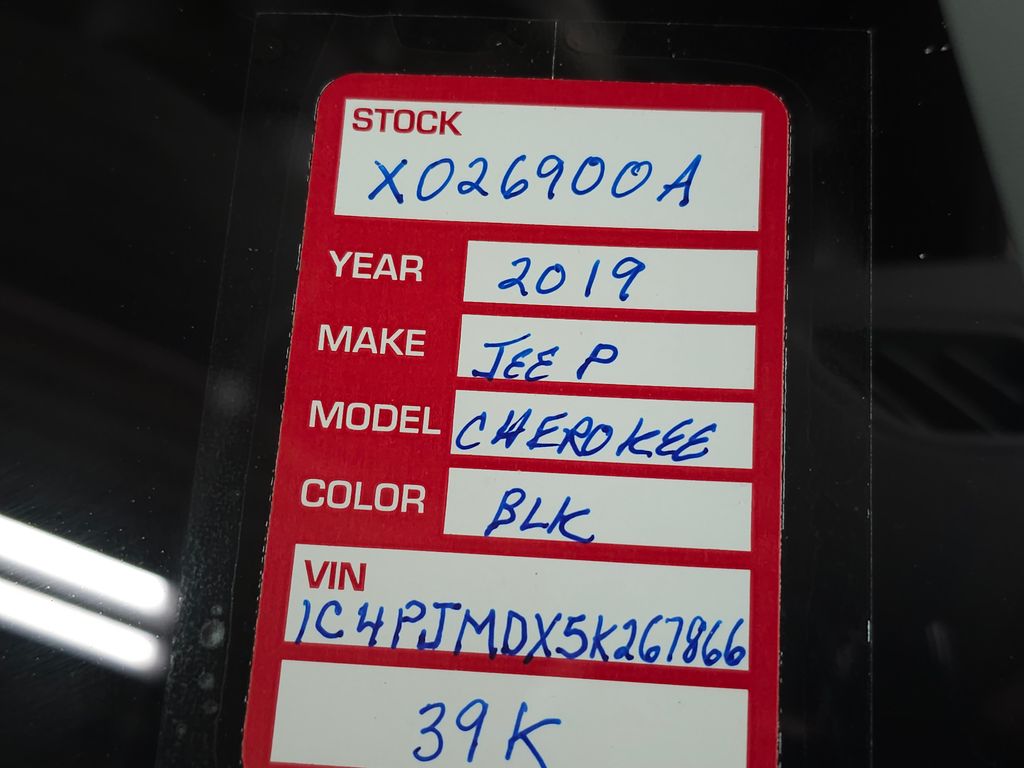 STOCK
X026900A
YEAR 2019
MAKE JEEP
MODEL CHEROKEE
COLOR BLK
VIN
1C4PJMDX5K267866
39K